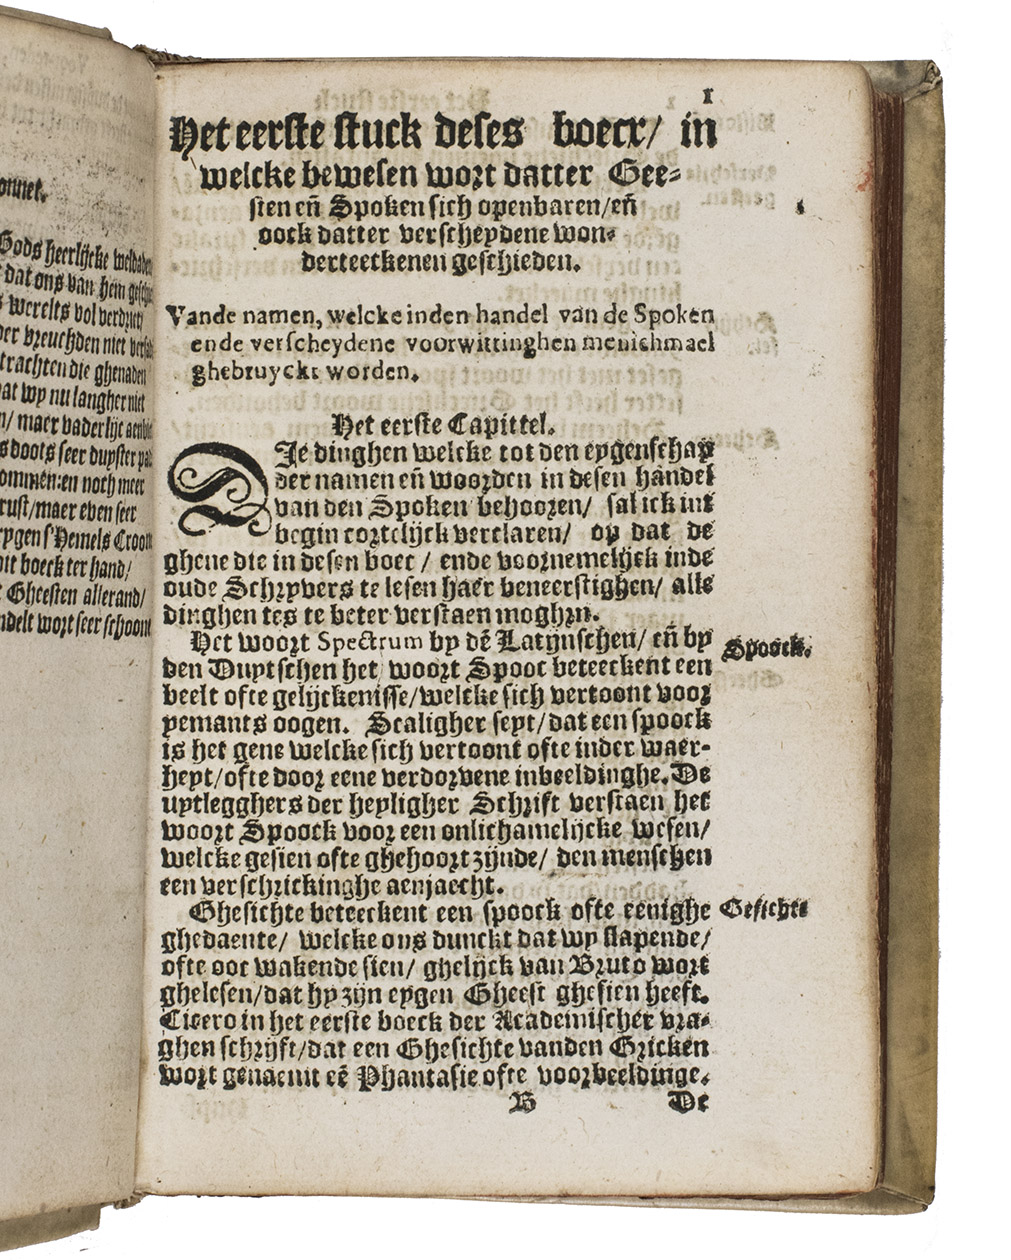 onnet.
Gods heerlijcke weldaden
dat ons van hem
s werelts vol verdriet
der vreuchden niet
trachten die ghenaden
at wy nu langher niet
n/ maer vaderlijc
s doots seer duyster
ommen: en noch meer
rust/maer even seer
ygen s'Hemels Croon
dit boeck ter hand/
t Gheesten allerand/
ndelt wort seer schoon
1
Het eerste stuck deses boecx/ in
welcke bewesen wort datter Gee-
sten eñ Spoken sich openbaren/eñ
oock datter verscheydene won-
derteeckenen geschieden.
Vande namen, welcke inden handel van de Spoken
ende verscheydene voorwittinghen menichmael
ghebruyckt worden.
Het eerste Capittel.
DIe dinghen welcke tot den eygenschap
der namen eñ woorden in desen handel
van den Spoken behooren/ sal ick int
begin cortelijck verclaren/ op dat de
ghene die in desen boec / ende voornemelijck inde
oude Schryvers te lesen haer beneerstighen/ alle
dinghen tes te beter verstaen moghen.
Het woort Spectrum by dē Latijnschen/ eñ by
den Duytschen het woort Spooc beteeckent een
beelt ofte gelijckenisse/welcke sich vertoont voor
yemants oogen. Scaligher seyt/dat een spoock
is het gene welcke sich vertoont ofte inder waer-
heyt/ofte door eene verdorvene inbeeldinghe. De
uytlegghers der heyligher Schrift verstaen het
woort Spoock voor een onlichamelijcke wesen/
welcke gesien ofte ghehoort zijnde/ den menschen
een verschrickinghe aenjaecht.
Spoock.
Ghesichte beteeckent een spoock ofte eenighe
ghedaente/ welcke ons dunckt dat wy slapende/
ofte ooc wakende sien/ ghelijck van Bruto wort
ghelesen/dat hy zijn eygen Gheest ghesien heeft.
Cicero in het eerste boeck der Academischer vra-
ghen schrijft/dat een Ghesichte vanden Gricken
wort genaemt eē Phantasie ofte voorbeeldinge.
Gesichte
B De